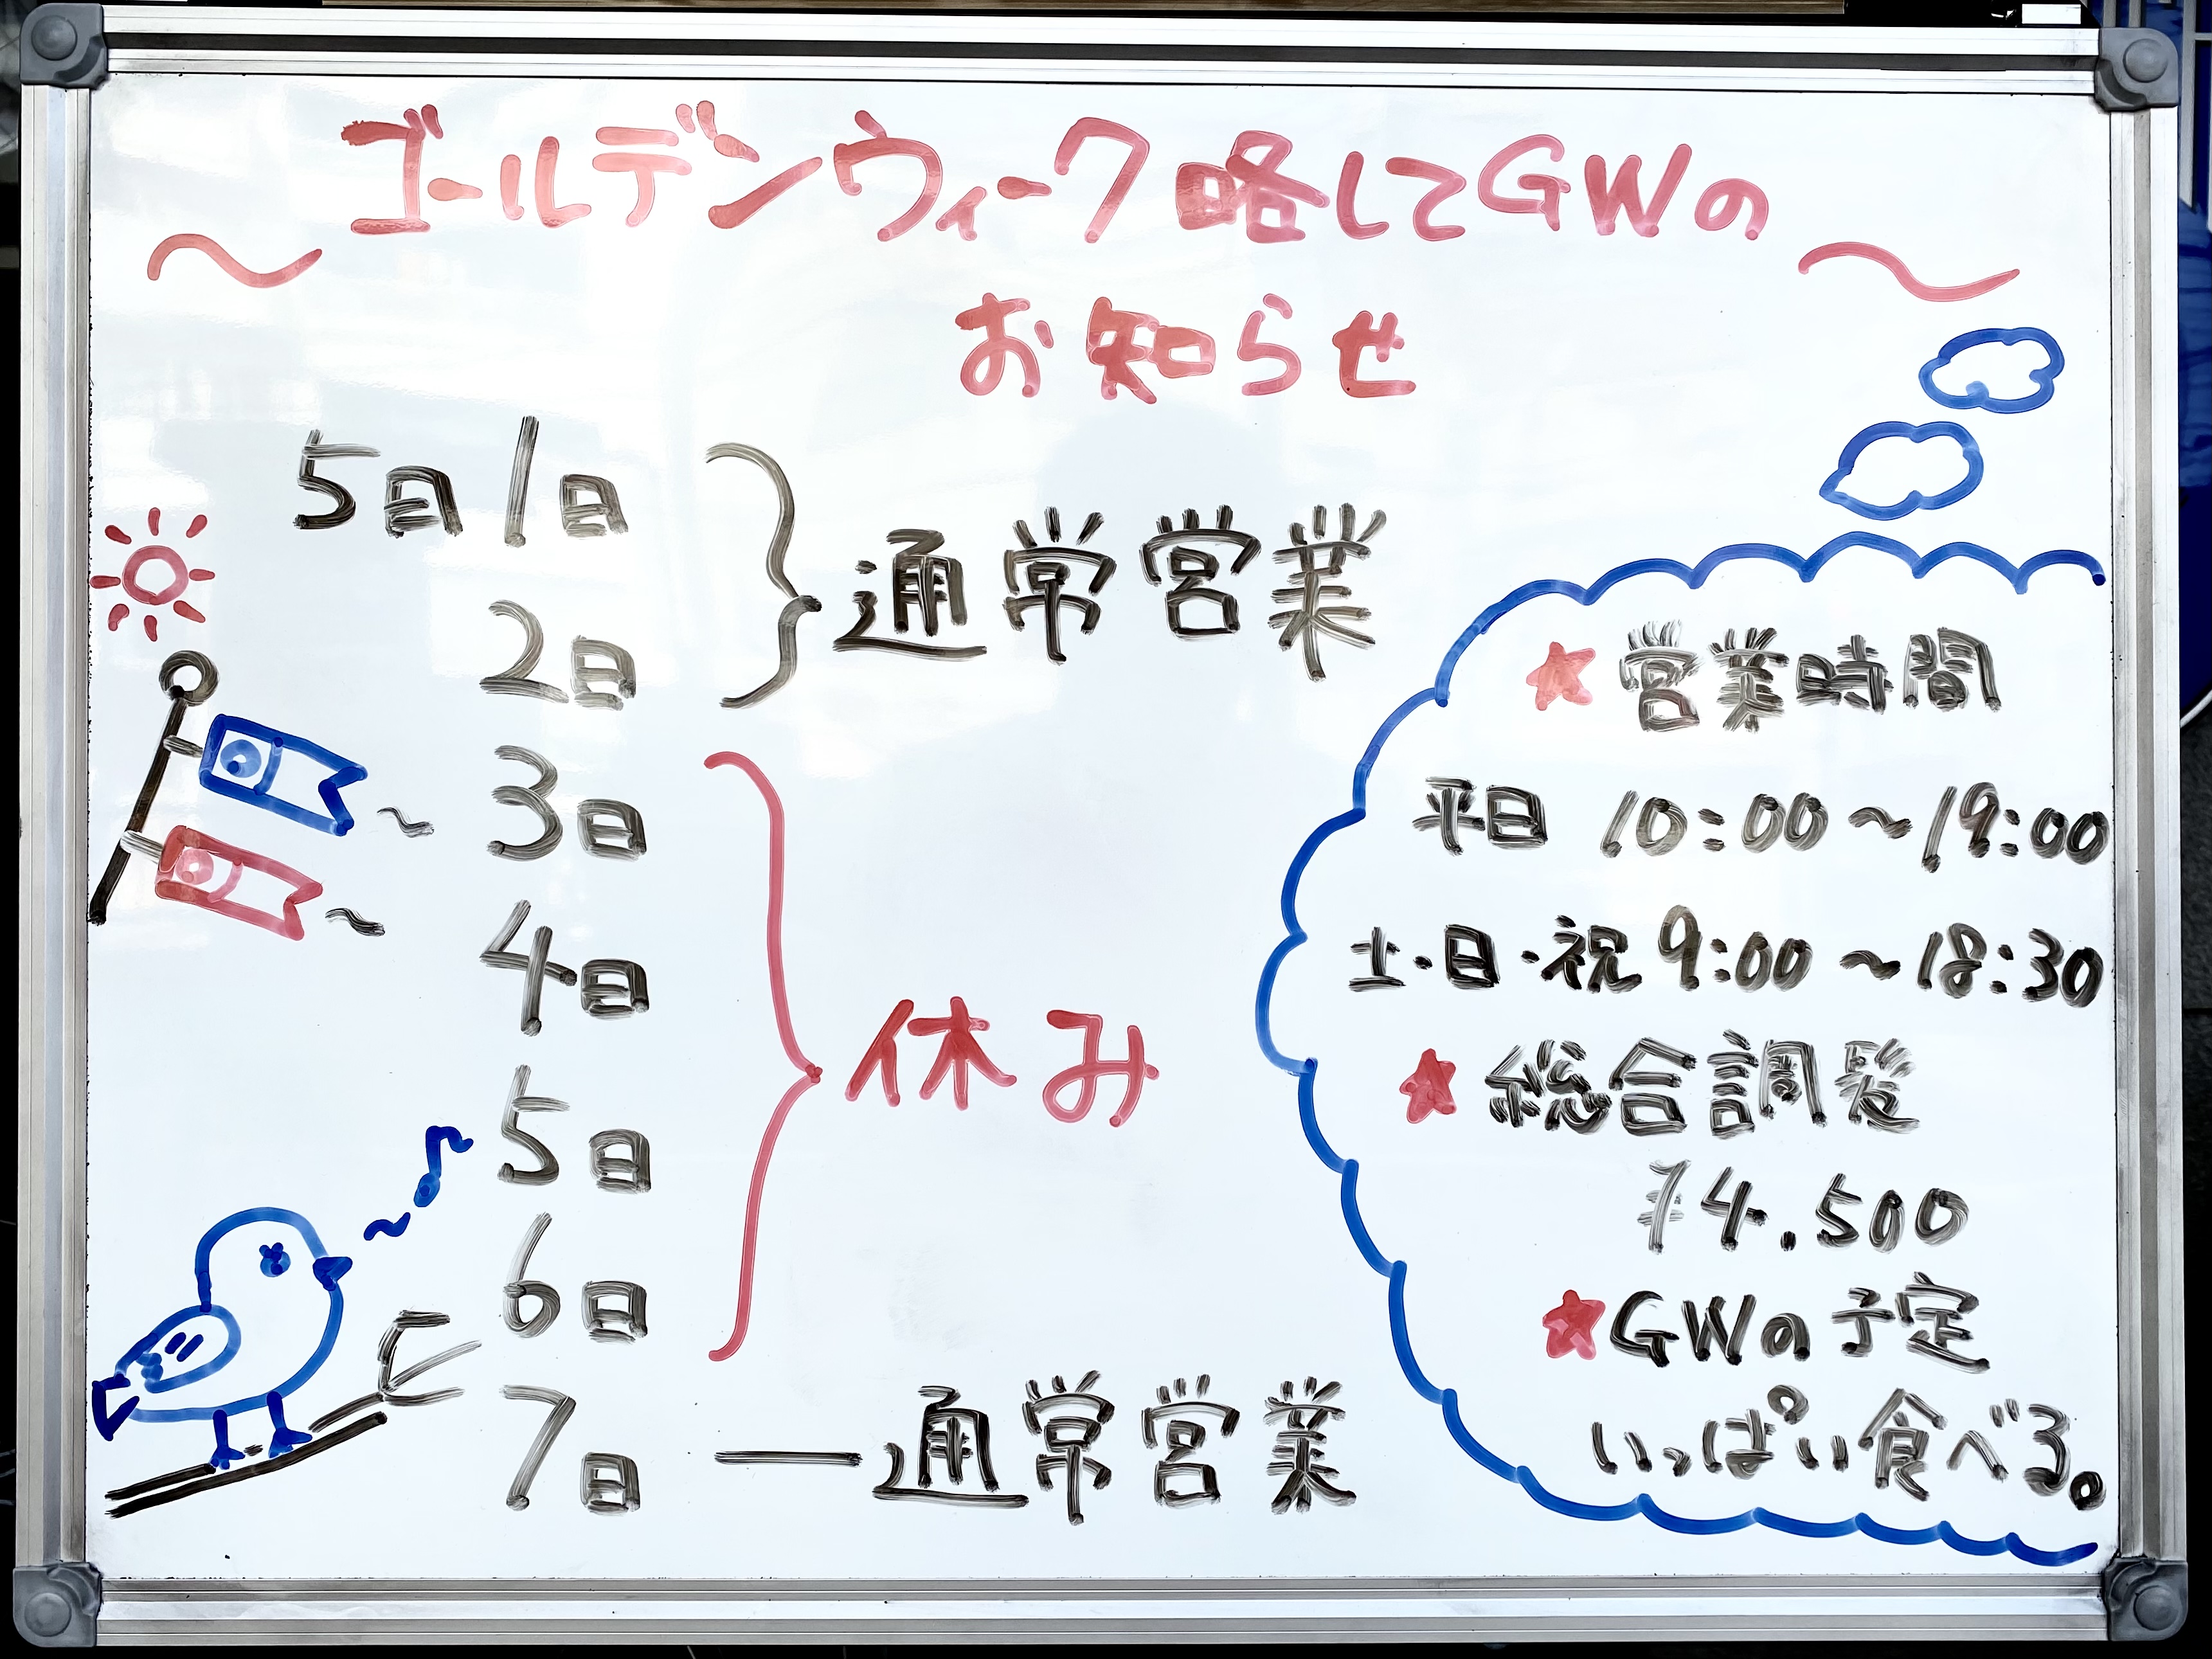 ～ゴールデンウィーク略してGWの～
お知らせ
5日1日
2日
通常営業
3日
4日
5日
6日
休み
7日 ― 通常営業
★営業時間
平日 10:00～19:00
土・日・祝 9:00～18:30
★総合調髪
¥4.500
★GWの予定
いっぱい食べる。